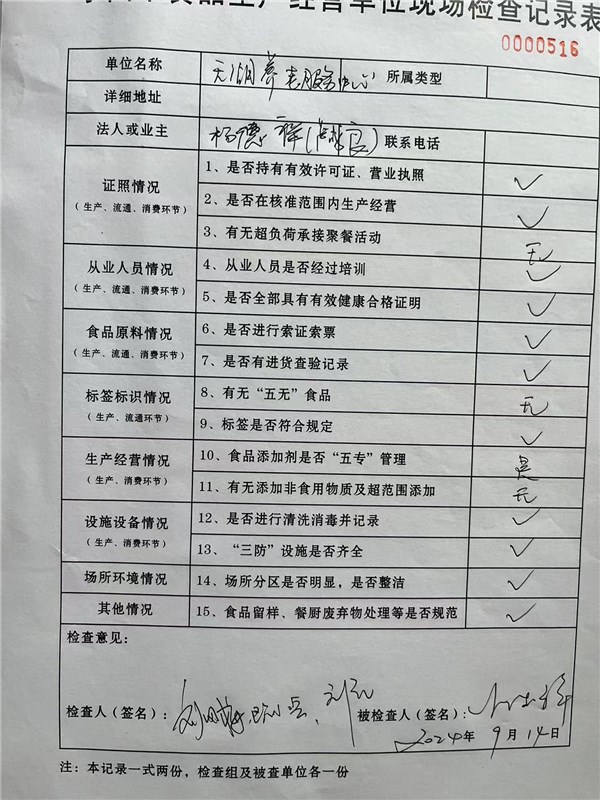 食品生产经营单位现场检查记录表
0000516
单位名称 养老服务中心 所属类型
详细地址
法人或业主 杨德祥 联系电话
证照情况
(生产、流通、消费环节)
1、是否持有有效许可证、营业执照 ✓
2、是否在核准范围内生产经营 ✓
3、有无超负荷承接聚餐活动 无
从业人员情况
(生产、流通、消费环节)
4、从业人员是否经过培训 ✓
5、是否全部具有有效健康合格证明 ✓
食品原料情况
(生产、流通、消费环节)
6、是否进行索证索票 ✓
7、是否有进货查验记录 ✓
标签标识情况
(生产、流通环节)
8、有无“五无”食品 无
9、标签是否符合规定 ✓
生产经营情况
(生产、消费环节)
10、食品添加剂是否“五专”管理 是
11、有无添加非食用物质及超范围添加 无
设施设备情况
(生产、消费环节)
12、是否进行清洗消毒并记录 ✓
13、“三防”设施是否齐全 ✓
场所环境情况
14、场所分区是否明显，是否整洁 ✓
其他情况
15、食品留样、餐厨废弃物处理等是否规范 ✓
检查意见：
检查人(签名)： 被检查人(签名)：
2024年 9月14日
注：本记录一式两份，检查组及被查单位各一份